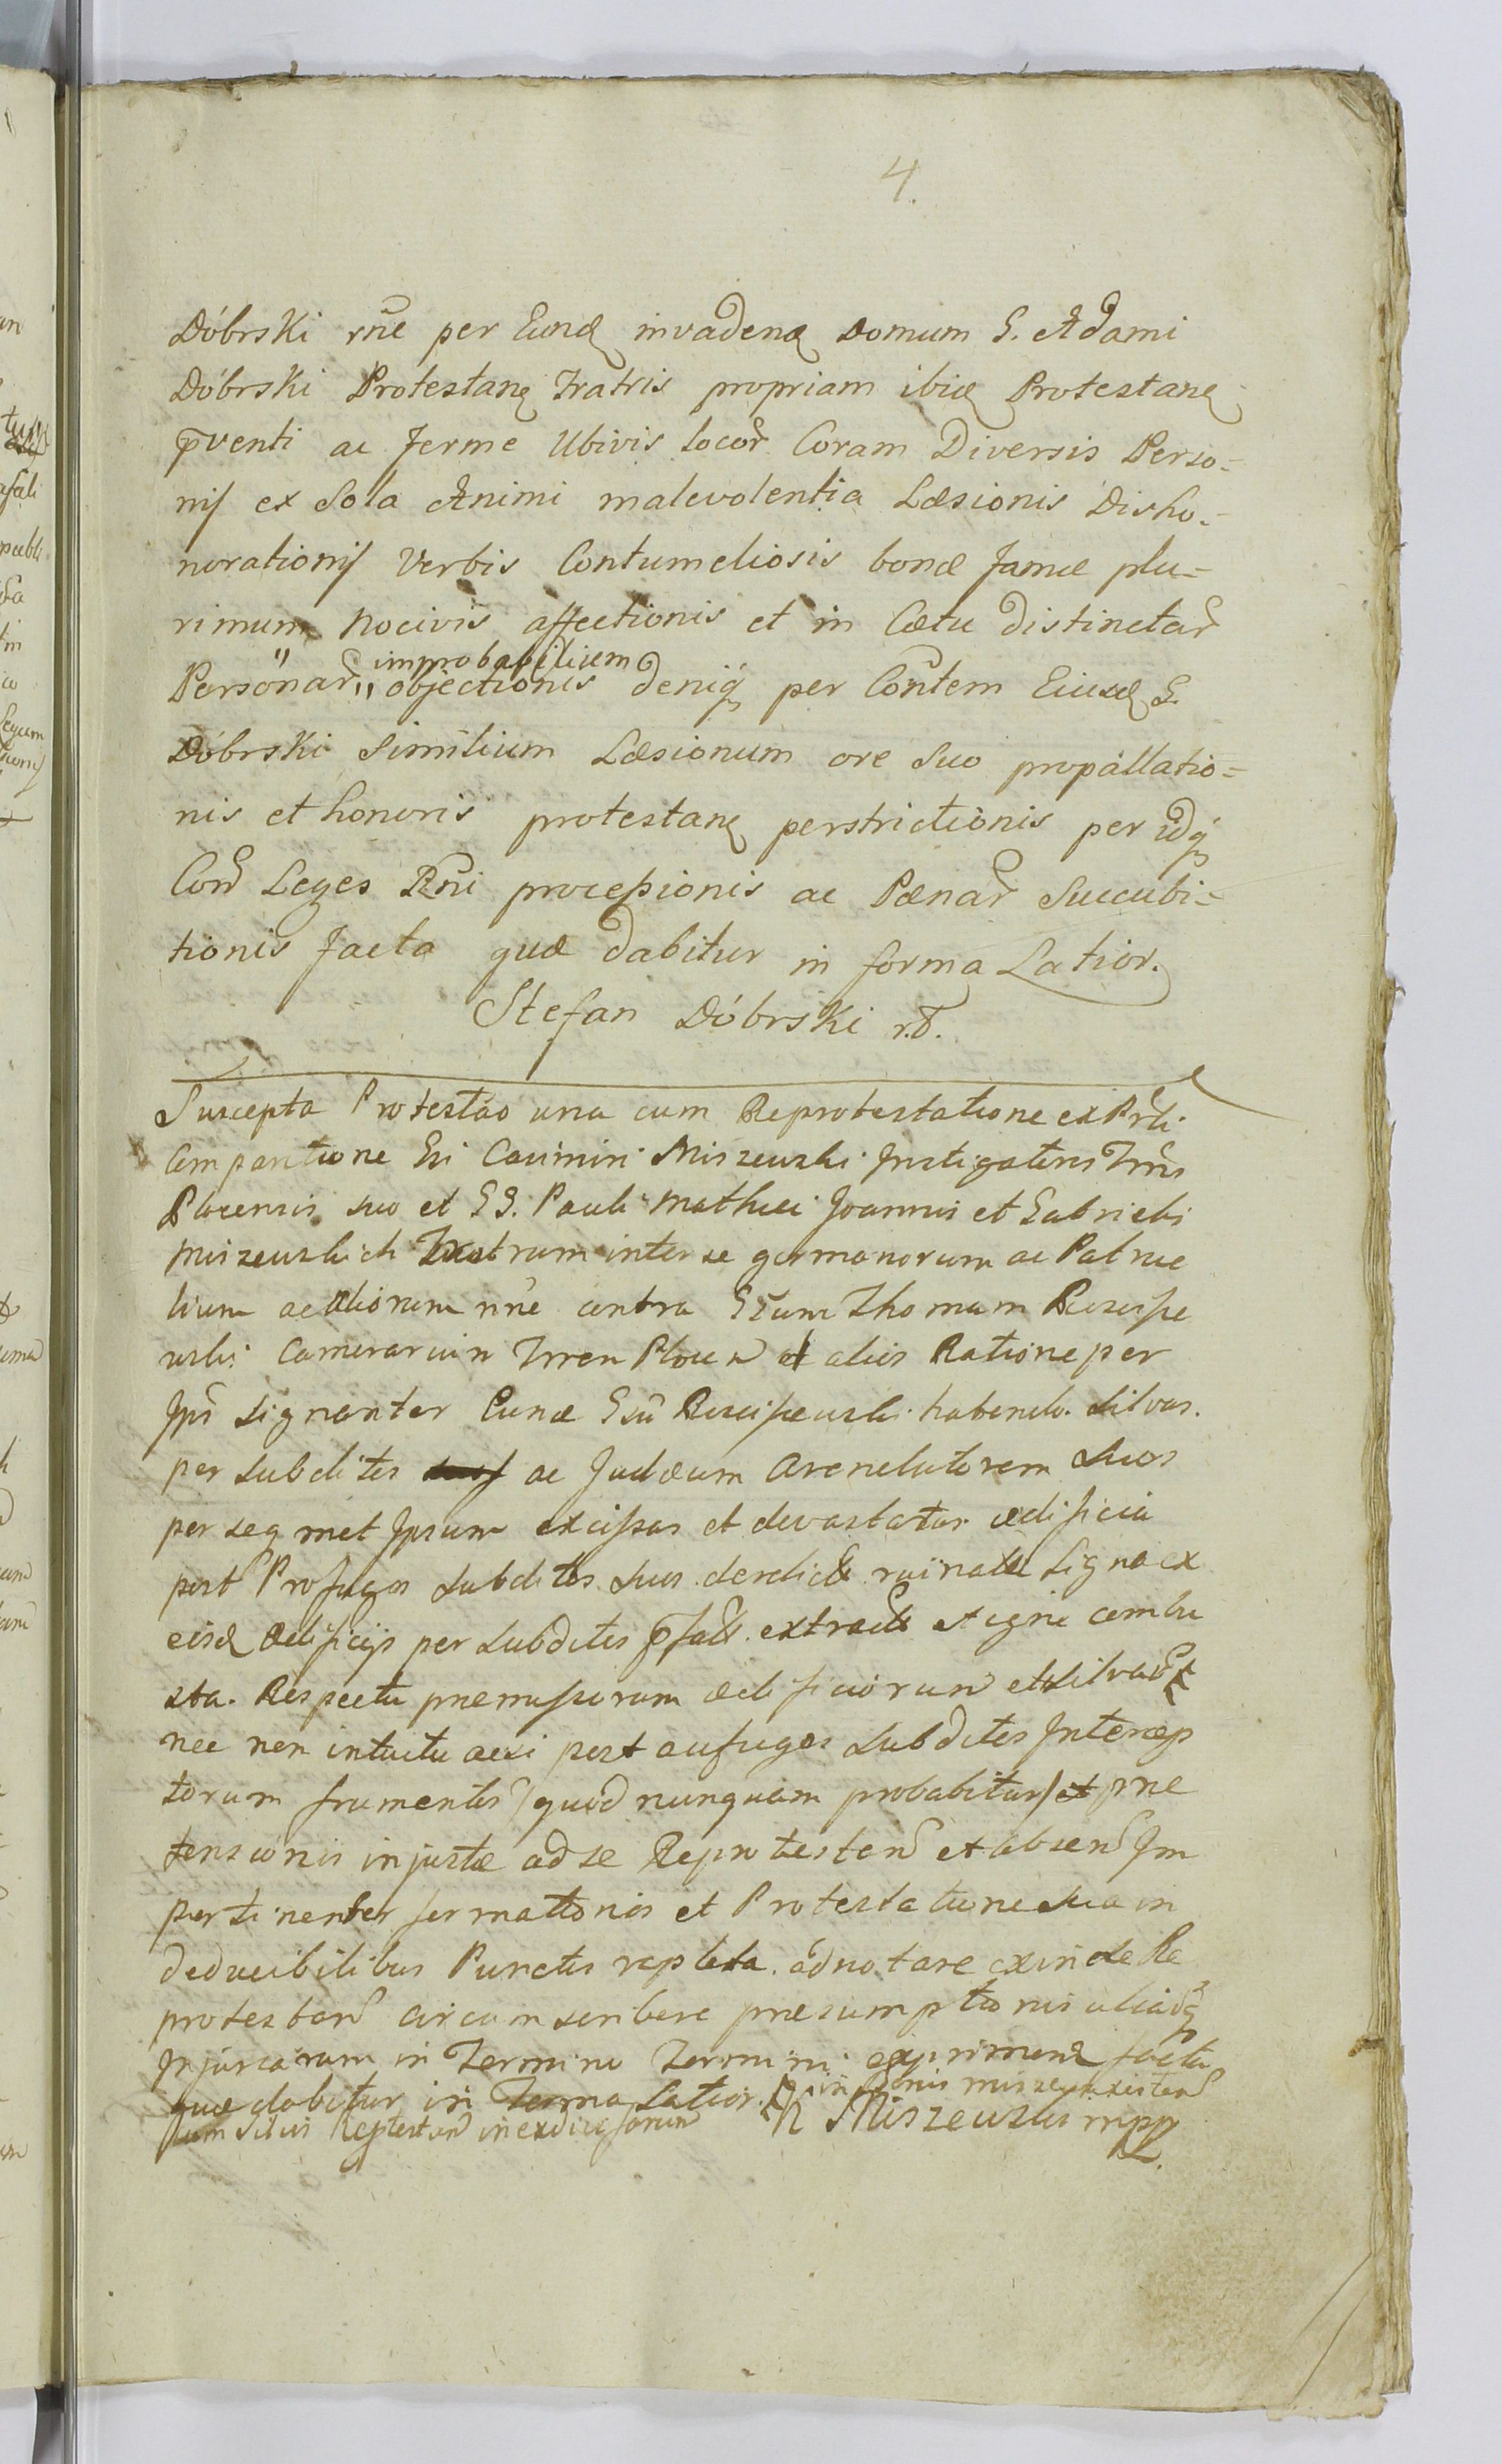 4.
Dóbrski rñe per Eund invadend Domum G. Adami
Dóbrski Protestang Fratris propriam ibid Protestang
pventi ac ferme Ubivis locor Coram Diversis Perso=
nis ex Sola Animi malevolentia Læsionis Disho=
norationis Verbis Contumeliosis bonæ famæ plu=
rimum Nocivis affectionis et in Cætu distinctar
improbabilium
Personar objectionis deniq per Contem Eiusd G.
Dóbrski Similium Læsionum ore Suo propallatio=
nis et honoris protestang perstrictionis per idq
Con Leges Rni processionis ac Pænar Succubi=
tionis facta quæ dabitur in forma Latior.
Stefan Dóbrski r.d.
Suscepta Protestao una cum Reprotestatione ex Prli
Comparitione Gsi Casimiri Miszewski Instigatoris Trris
Plocensis suo et GG. Pauli Mathei Joannis et Gabrielis
Miszewskich Fratrum inter se germanorum ac Patrue
lium ac aliorum nñe contra Gsum Thomam Rzeszpe
wski Camerarium Trren Plocen et aliis Ratione per
Ips signanter Eund Gsu habende Silvas
per subditos ac Judæum Arendatorem Suos
per seq met Ipsum excissas et devastatas ædificia
post Profugos subditos suos derelicta ruinata Ligna ex
eisd ædificijs per subditos pfatt. extracta et igne combu
sta. Respectu præmissorum ædificiorum et silvar
nec non intuitu acsi post aufugos subditos Intercep
torum frumentor (quod nunquam probabitur) et præ
tensionis injustæ ad se Reprotesten et absen Im
pertinenter formationis et Protestatione sua in
deducibilibus Punctis repleta adnotare exinde Re
protestan circumscribere præsumptionis aliarq
Injuriarum in Termino Termini exprimend facta
quæ dabitur in Forma Latior. in bonis
cum silvis Reptestan Miszewski mpp